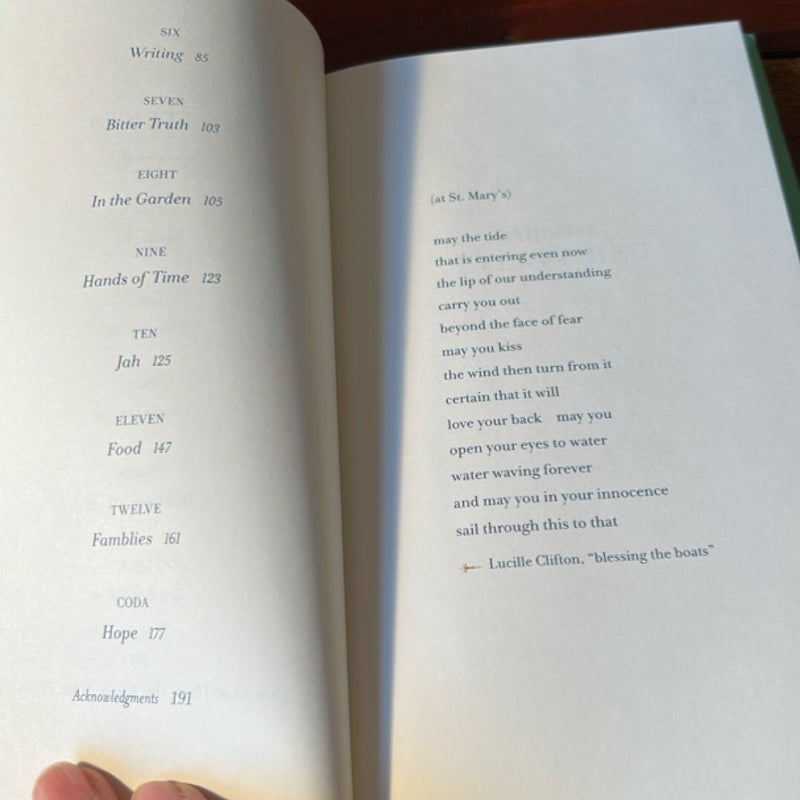 SIX
Writing 85
SEVEN
Bitter Truth 103
EIGHT
In the Garden 105
NINE
Hands of Time 123
TEN
Jah 125
ELEVEN
Food 147
TWELVE
Famblies 161
CODA
Hope 177
Acknowledgments 191
(at St. Mary's)
may the tide
that is entering even now
the lip of our understanding
carry you out
beyond the face of fear
may you kiss
the wind then turn from it
certain that it will
love your back may you
open your eyes to water
water waving forever
and may you in your innocence
sail through this to that
— Lucille Clifton, “blessing the boats”